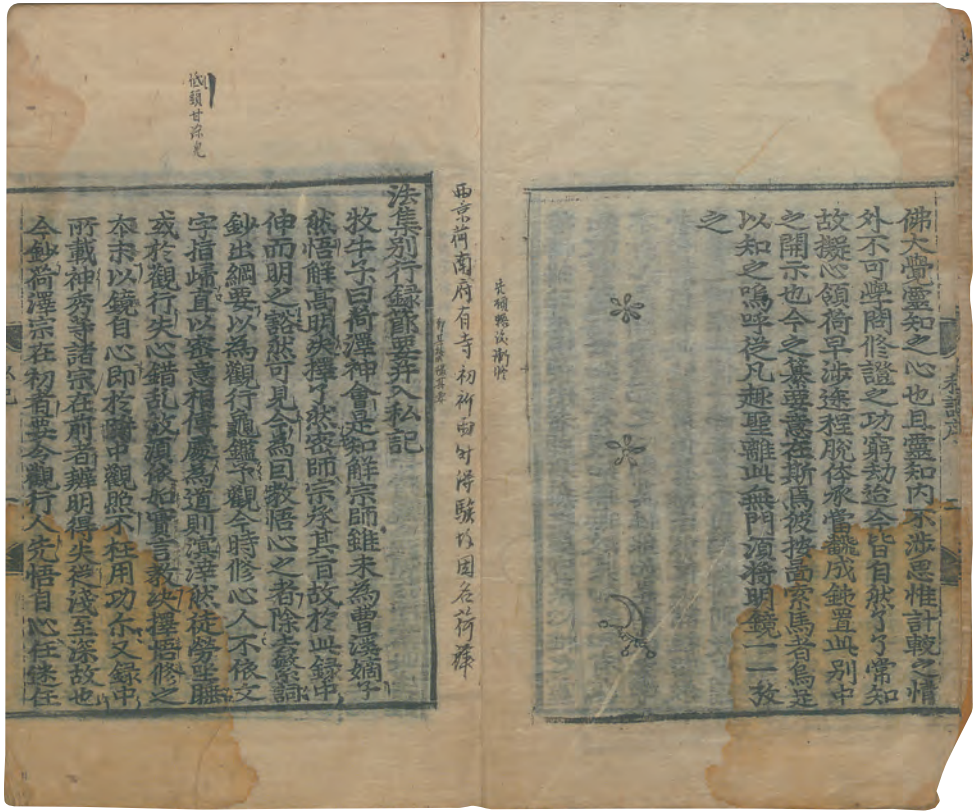 佛大覺靈知之心也且靈知內不涉思惟計較之情
外不可學問修證之功窮劫迨今皆自然了了常知
故擬心領荷早涉途程脫体承當飜成鈍置此別中
之開示也今之纂要意在斯焉彼按啚索馬者烏足
以知之嗚呼從凡趣聖離此無門須將明鏡一一挍
之
西京荷南府有寺初祈雨於得驗故因名荷澤
法集別行録節要幷入私記
牧牛子曰荷澤神會是知解宗師雖未為曹溪嫡子
然悟解高明决擇了然密師宗承其旨故於此録中
伸而明之豁然可見今為因敎悟心之者除去繁詞
鈔出綱要以為觀行龜鑑予觀今時修心人不依文
字指歸直以密意相傳處為道則溟涬然徒勞坐睡
或於觀行失心錯乱故須依如實言敎决擇悟修之
本末以鏡自心即於時中觀照不枉用功尒又録中
所載神秀等諸宗在前者辨明得失從淺至深故也
今鈔荷澤宗在初者要令觀行人先悟自心任迷任
低頭甘